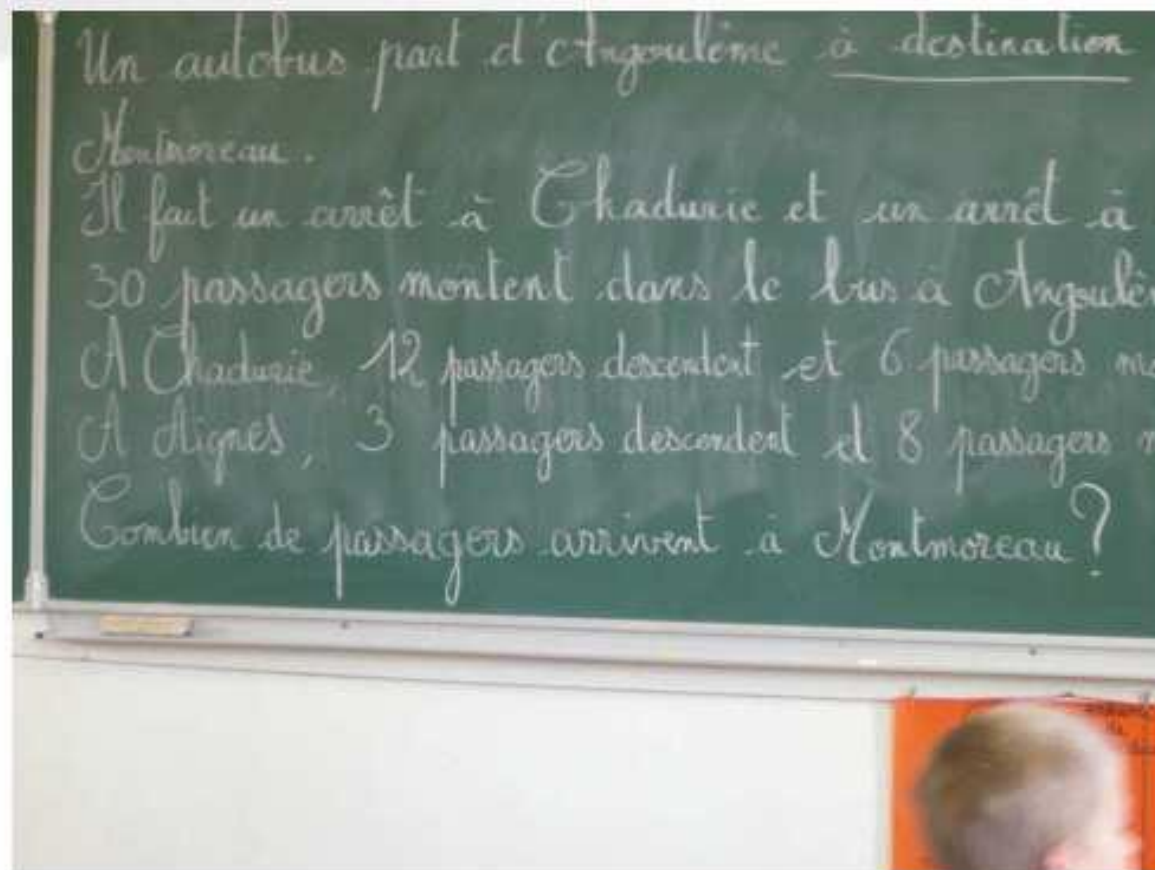 Un autobus part d'Angoulême à destination
Montmoreau.
Il fait un arrêt à Chadurie et un arrêt à
30 passagers montent dans le bus à Angoulê
A Chadurie, 12 passagers descendent et 6 passagers mo
A Aignes, 3 passagers descendent et 8 passagers m
Combien de passagers arrivent à Montmoreau ?